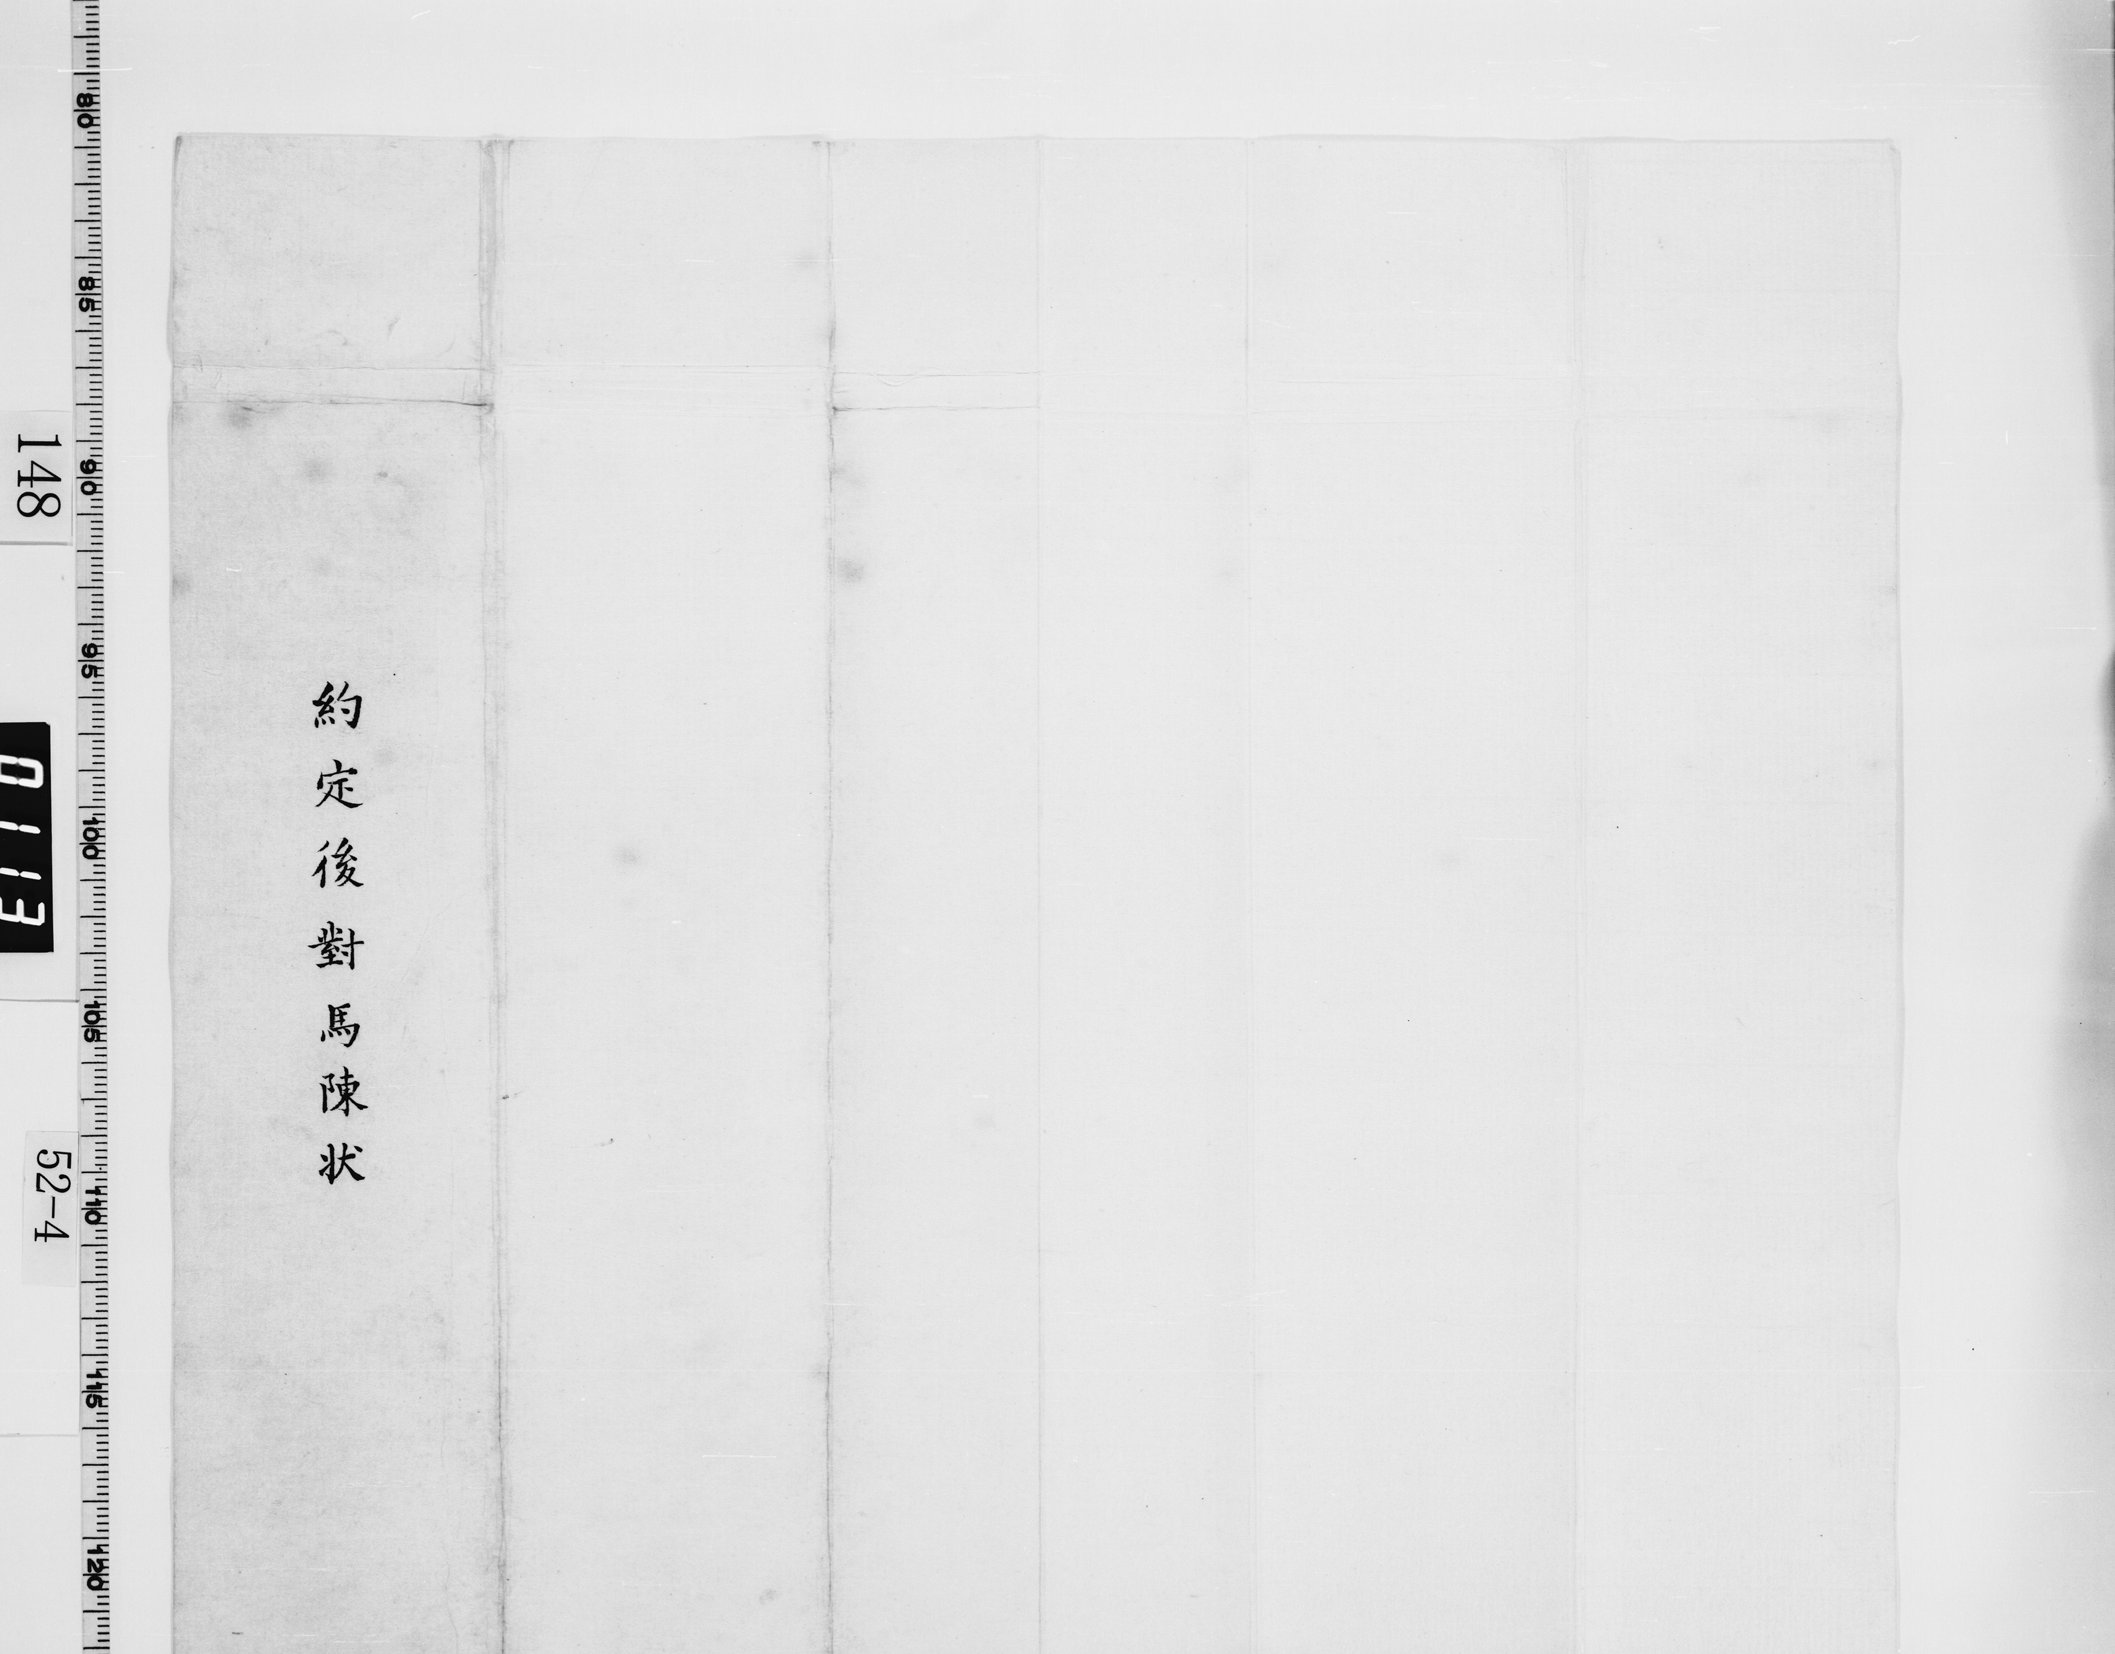 約定後對馬陳状
148
0113
52-4
80
85
90
95
100
105
110
115
120